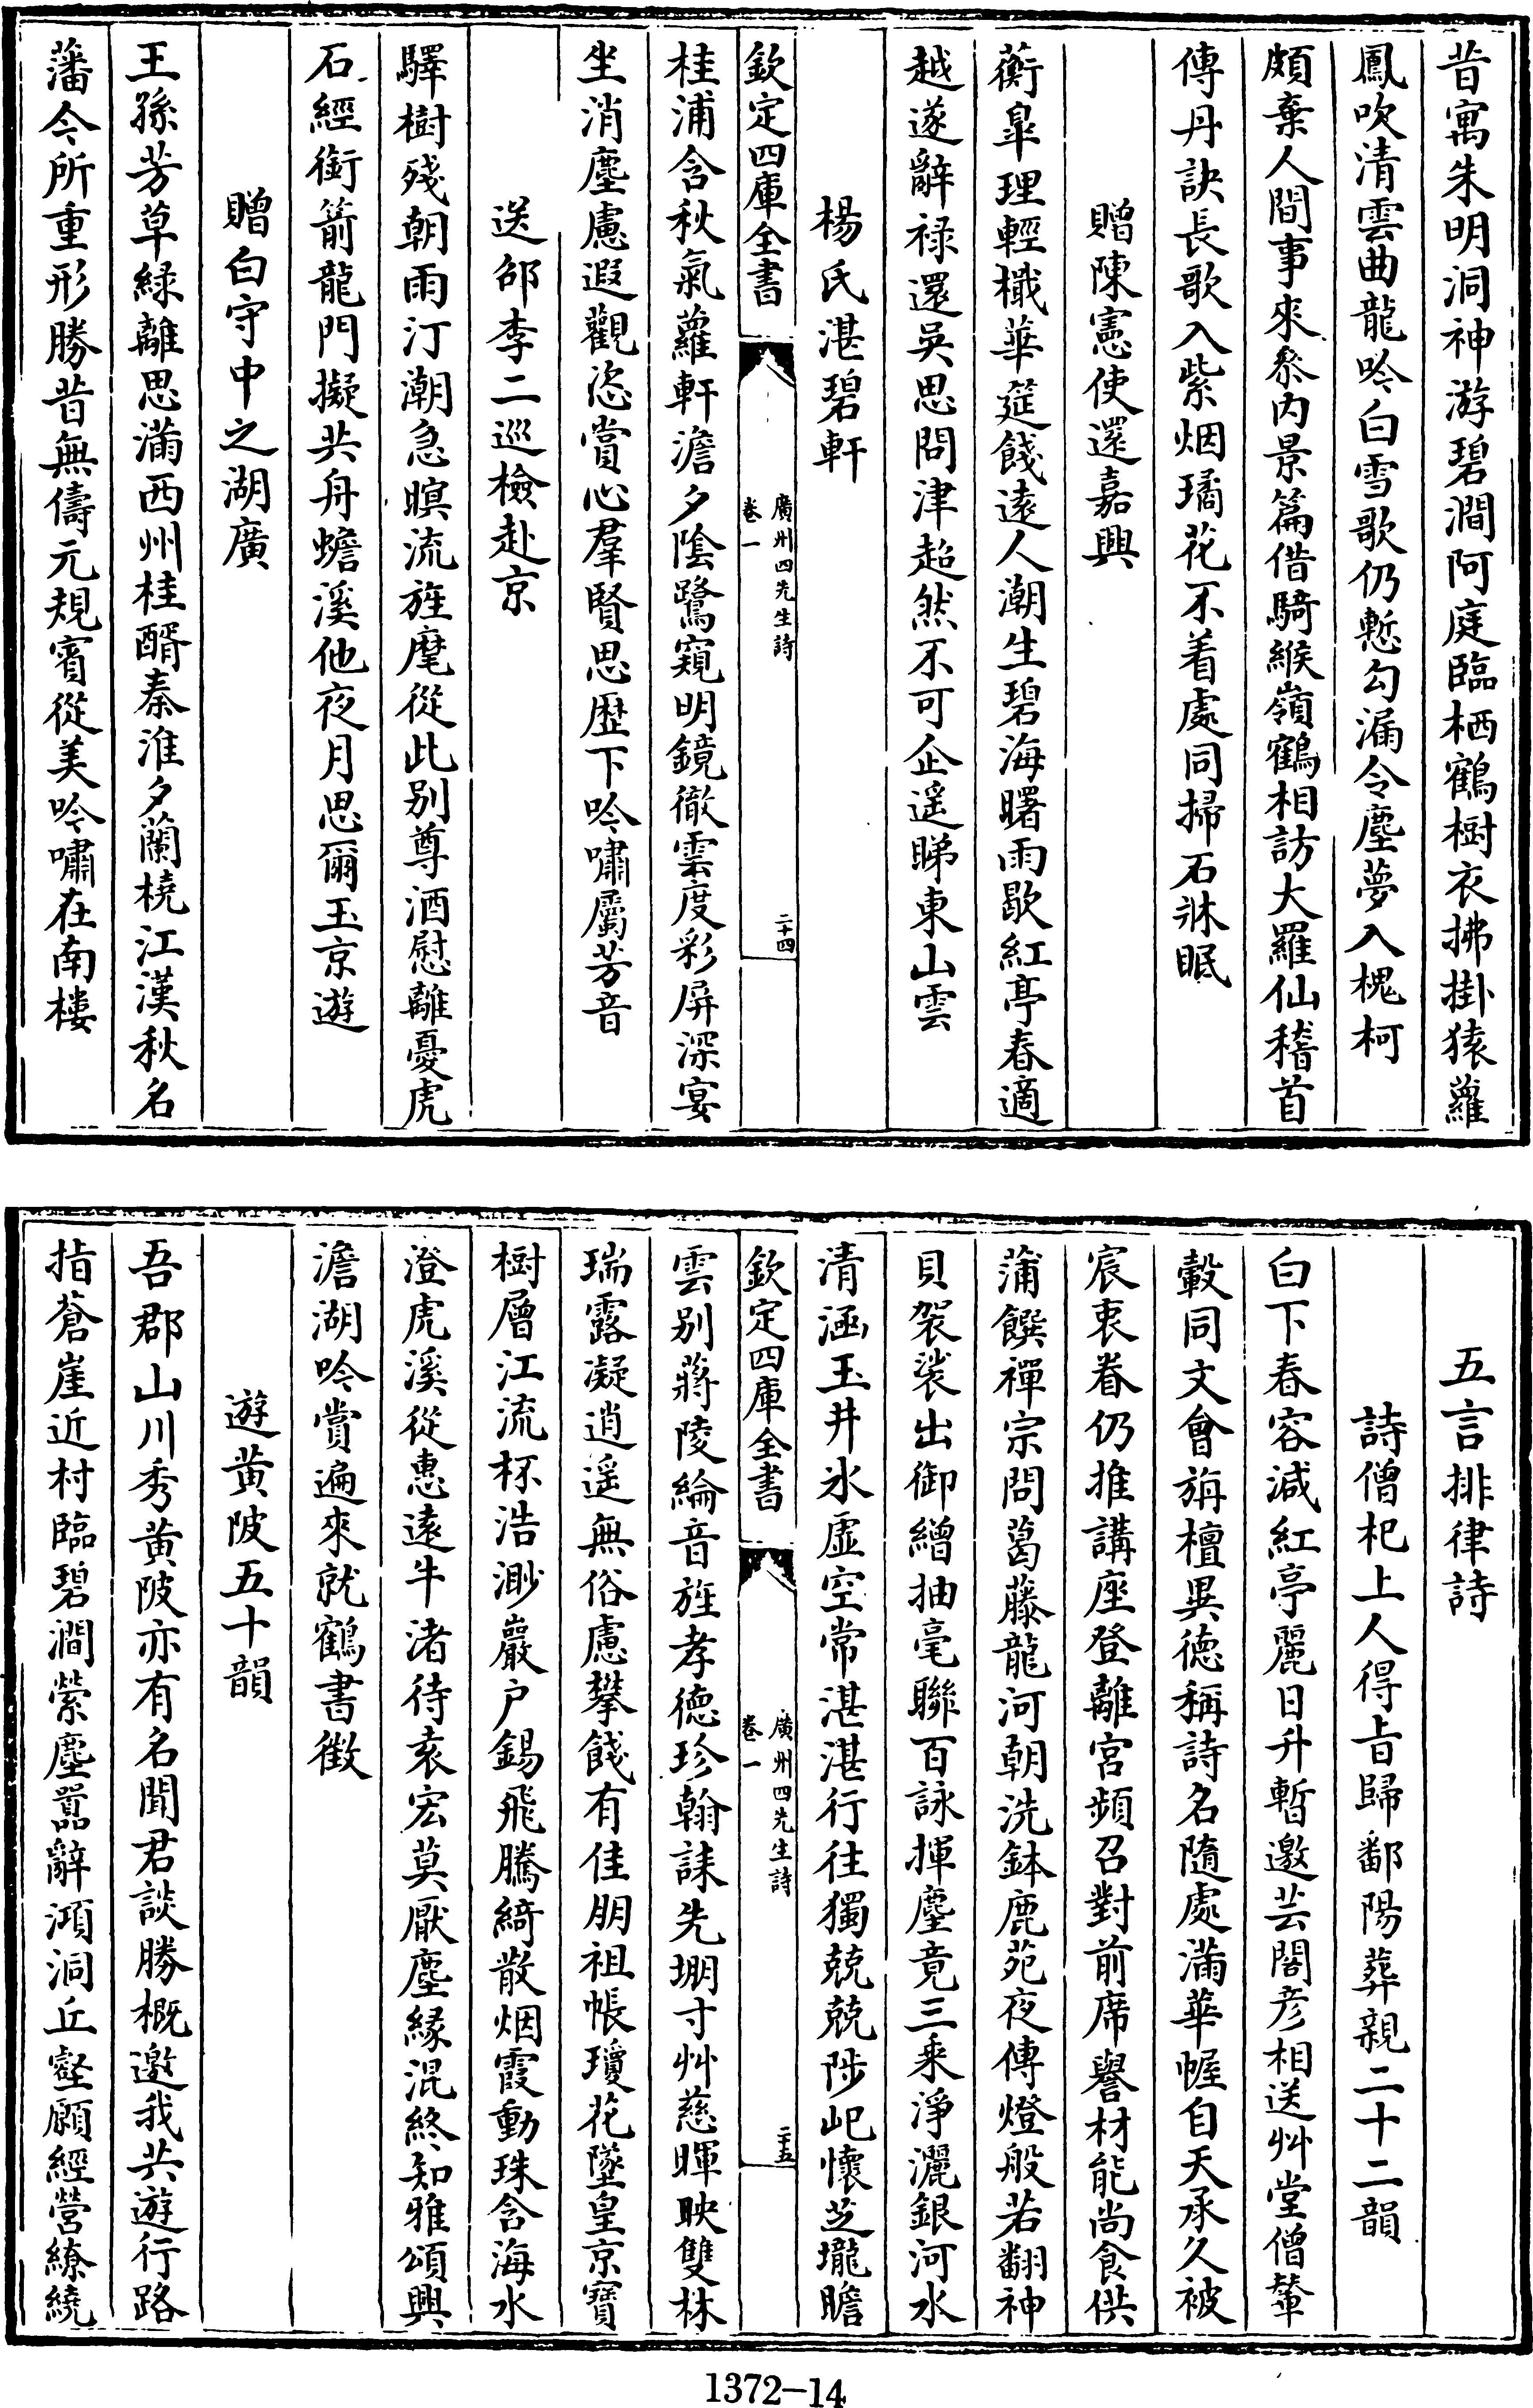 昔寓朱明洞神游碧澗阿庭臨栖鶴樹衣拂掛猿蘿
鳳吹清雲曲龍吟白雪歌仍慙勾漏令塵夢入槐柯
頗棄人間事來叅内景篇借騎緱嶺鶴相訪大羅仙稽首
傳丹訣長歌入紫烟璚花不着處同掃石牀眠
贈陳憲使還嘉興
蘅臯理輕檝華筵餞遠人潮生碧海曙雨歇紅亭春適
越遂辭禄還吳思問津超然不可企遥睇東山雲
楊氏湛碧軒
欽定四庫全書
廣州四先生詩
卷一
二十四
桂浦含秋氣蘿軒澹夕陰鷺窺明鏡徹雲度彩屏深宴
坐消塵慮遐觀恣賞心羣賢思歴下吟嘯屬芳音
送邵李二巡檢赴京
驛樹殘朝雨汀潮急暝流旌麾從此别尊酒慰離憂虎
石經銜箭龍門擬共舟蟾溪他夜月思爾玉京遊
贈白守中之湖廣
王孫芳草緑離思滿西州桂醑秦淮夕蘭橈江漢秋名
藩今所重形勝昔無儔元規賓從美吟嘯在南樓
五言排律詩
詩僧杞上人得㫖歸鄱陽葬親二十二韻
白下春容減紅亭麗日升暫邀芸閣彦相送艸堂僧輦
轂同文會旃檀異德稱詩名隨處滿華幄自天承久被
宸衷眷仍推講座登離宮頻召對前席譽材能尚食供
蒲饌禪宗問葛藤龍河朝洗鉢鹿苑夜傳燈般若翻神
貝袈裟出御繒抽毫聯百詠揮麈竟三乘淨灑銀河水
清涵玉井氷虚空常湛湛行往獨兢兢陟屺懷芝壠瞻
欽定四庫全書
廣州四先生詩
卷一
二十五
雲别蔣陵綸音旌孝德珍翰誄先堋寸艸慈暉映雙林
瑞露凝逍遥無俗慮攀餞有佳朋祖帳瓊花墜皇京寳
樹層江流杯浩渺巖户錫飛騰綺散烟霞動珠含海水
澄虎溪從惠遠牛渚待袁宏莫厭塵縁混終知雅頌興
澹湖吟賞遍來就鶴書徴
遊黄陂五十韻
吾郡山川秀黄陂亦有名聞君談勝概邀我共遊行路
指蒼崖近村臨碧澗縈塵囂辭澒洞丘壑願經營繚繞
1372-14